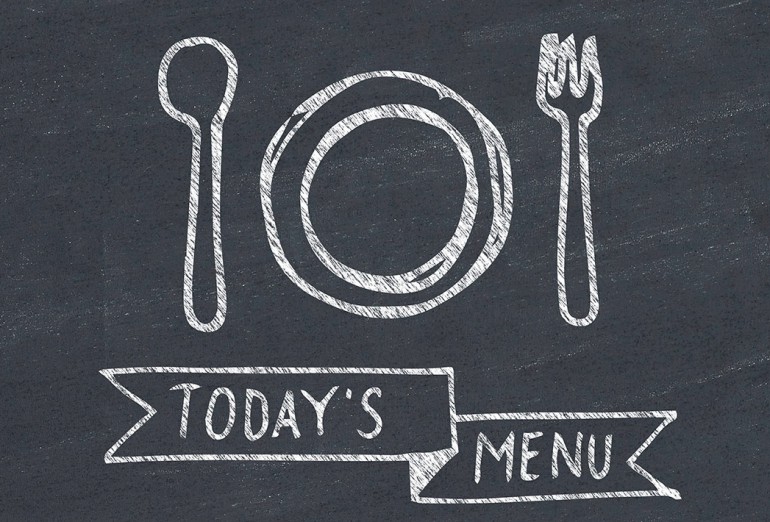 TODAY'S
MENU